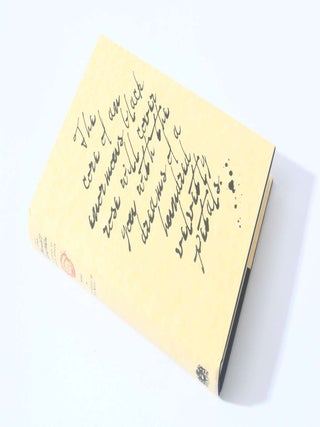 The
core of an
enormous black
rose will cover
you with the
dreams of a
hundred
velvety
petals.